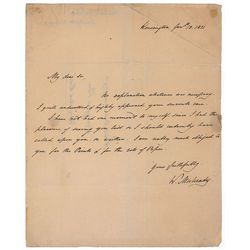 Kensington Jany 18. 1831
My dear Sir
No explanation whatever was necessary
I quite understood, & highly approved your
I have not had one moment to myself since I had the
pleasure of seeing you last or I should certainly have
called upon you or written. I am vastly much obliged to
you for the Books & for the
Yours faithfully
W.